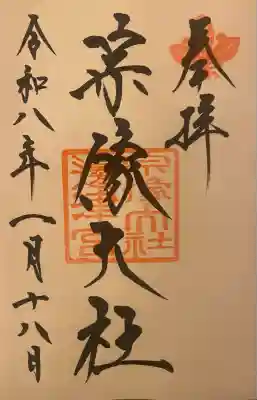 奉拝
宗像大社
令和八年一月十八日
宗像大社
邊津宮